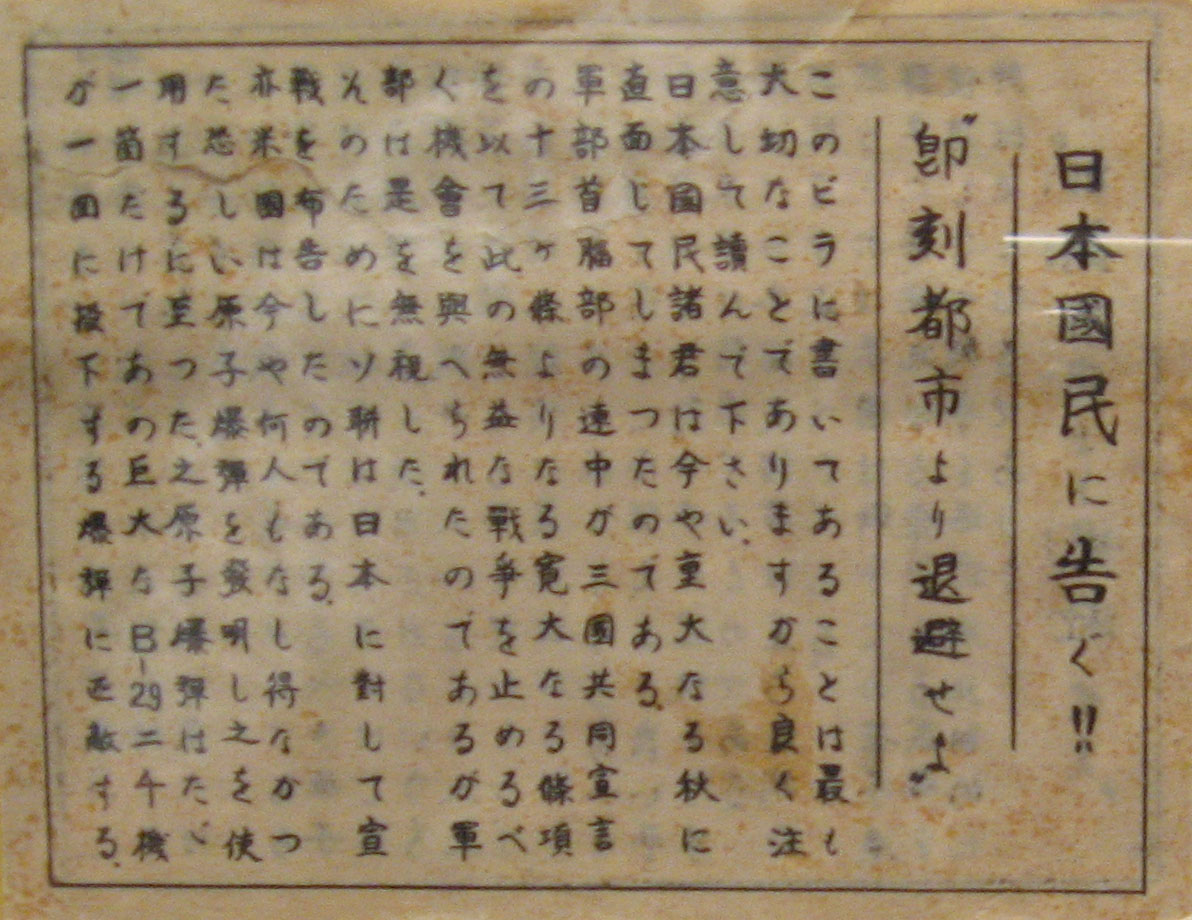 日本國民に告ぐ!!
"即刻都市より退避せよ"
このビラに書いてあることは最も
大切なことでありますから良く注
意して讀んで下さい、
日本國民諸君は今や重大なる秋に
直面してしまつたのである、
軍部首腦部の連中が三國共同宣言
の十三ヶ條よりなる寛大なる條項
を以て此の無益な戰爭を止めるべ
く機會を與へられたのであるが軍
部は是を無視した、
そのためにソ聯は日本に對して宣
戰を布告したのである、
亦米國は今や何人もなし得なかつ
た恐しい原子爆彈を發明し之を使
用するに至つた、之原子爆彈はたゞ
一箇だけであの巨大なB-29二千機
が一回に投下する爆彈に匹敵する、